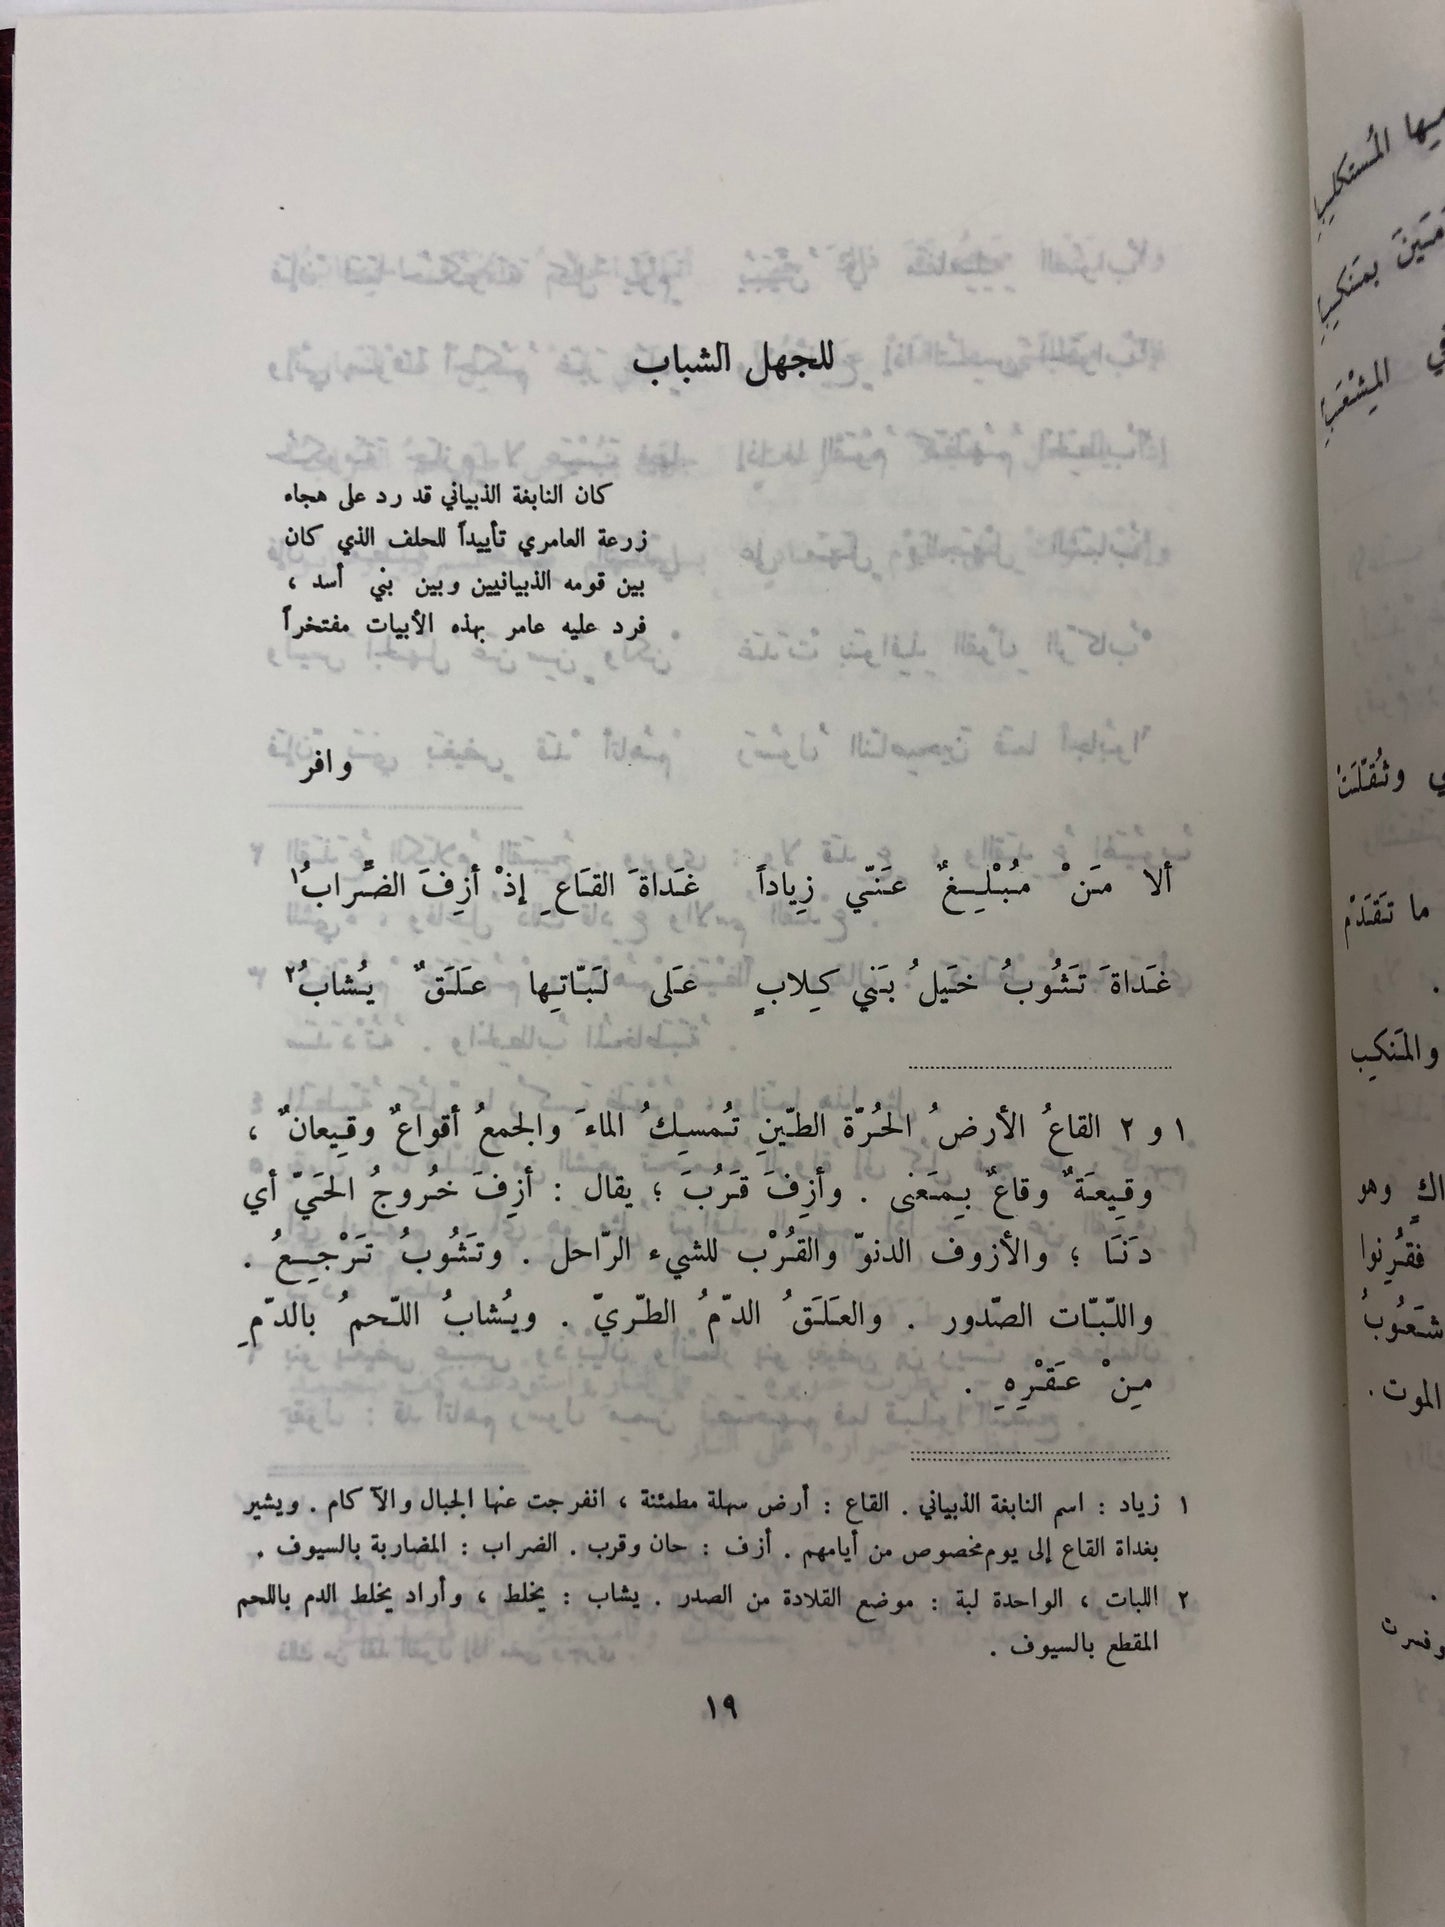 للجهل الشباب
كان النابغة الذبياني قد رد على هجاء
زرعة العامري تأييداً للحلف الذي كان
بين قومه الذبيانيين وبين بني أسد ،
فرد عليه عامر بهذه الأبيات مفتخراً
وافر
ألا مَنْ مُبْلِغٌ عَنّي زِياداً غَداةَ القَاعِ إذْ أزِفَ الضَّرابُ١
غَداةَ تَثُوبُ خَيلُ بَني كِلابٍ عَلى لَبّاتِها عَلَقٌ يُشابُ٢
١ و ٢ القاعُ الأرضُ الحُرّة الطّينِ تُمسِكُ الماءَ والجمعُ أقواعٌ وقِيعانٌ ،
وقِيعَةٌ وقاعٌ بِمَعنى . وأزِفَ قَرُبَ ؛ يقال : أزِفَ خُروجُ الحَيّ أي
دَنَا ؛ والأزوف الدنوّ والقُرْب للشيء الرّاحل . وتَثُوبُ تَرْجِعُ .
واللّبّات الصّدور . والعَلَقُ الدّمُ الطّريّ . ويُشابُ اللّحمُ بالدّمِ
مِنْ عَقْرِهِ .
١ زياد : اسم النابغة الذبياني . القاع : أرض سهلة مطمئنة ، انفرجت عنها الجبال والآكام . ويشير
بغداة القاع إلى يوم مخصوص من أيامهم . أزف : حان وقرب . الضراب : المضاربة بالسيوف .
٢ اللبات ، الواحدة لبة : موضع القلادة من الصدر . يشاب : يخلط ، وأراد يخلط الدم باللحم
المقطع بالسيوف .
١٩
المُستكلِبِ
بمَنكِبِ
المِشْعَبِ
وثُقْلَتْ
ما تَقَدّمْ
والمَنكِب
وهو
فقُرِنوا
شَعُوبُ
الموت .
وفسرت